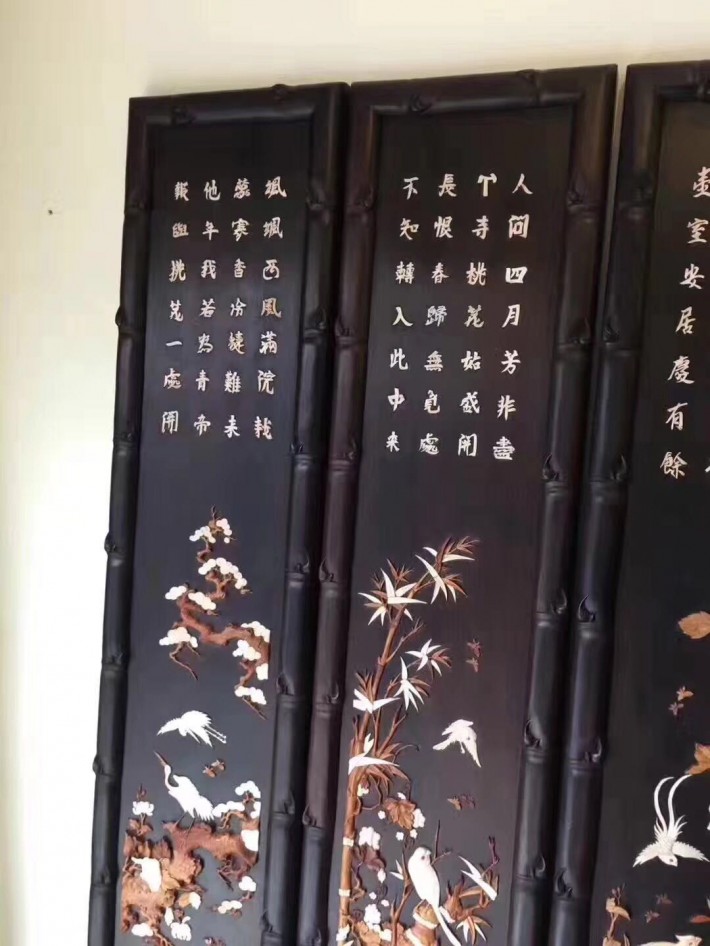 壶室安居慶有餘
人问四月芳非盡
寺桃花始盛開
長恨春歸無覓處
不知轉入此中来
颯颯西風滿院栽
蕊寒香冷蝶難来
他年我若為青帝
報與桃花一處開